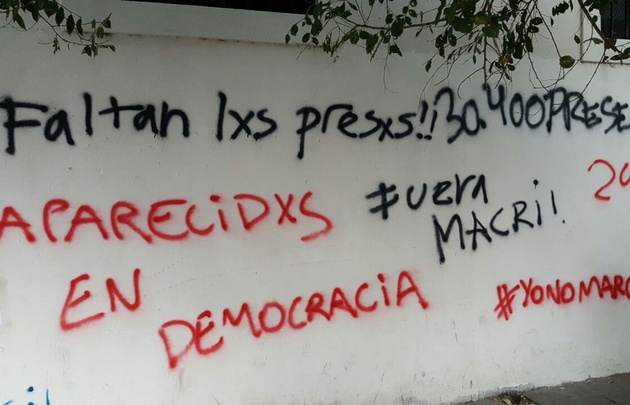 Faltan lxs presxs!! 30.400 PRESE
APARECIDXS
#uera
MACRI!!
EN
DEMOCRACIA
#YONOMARC